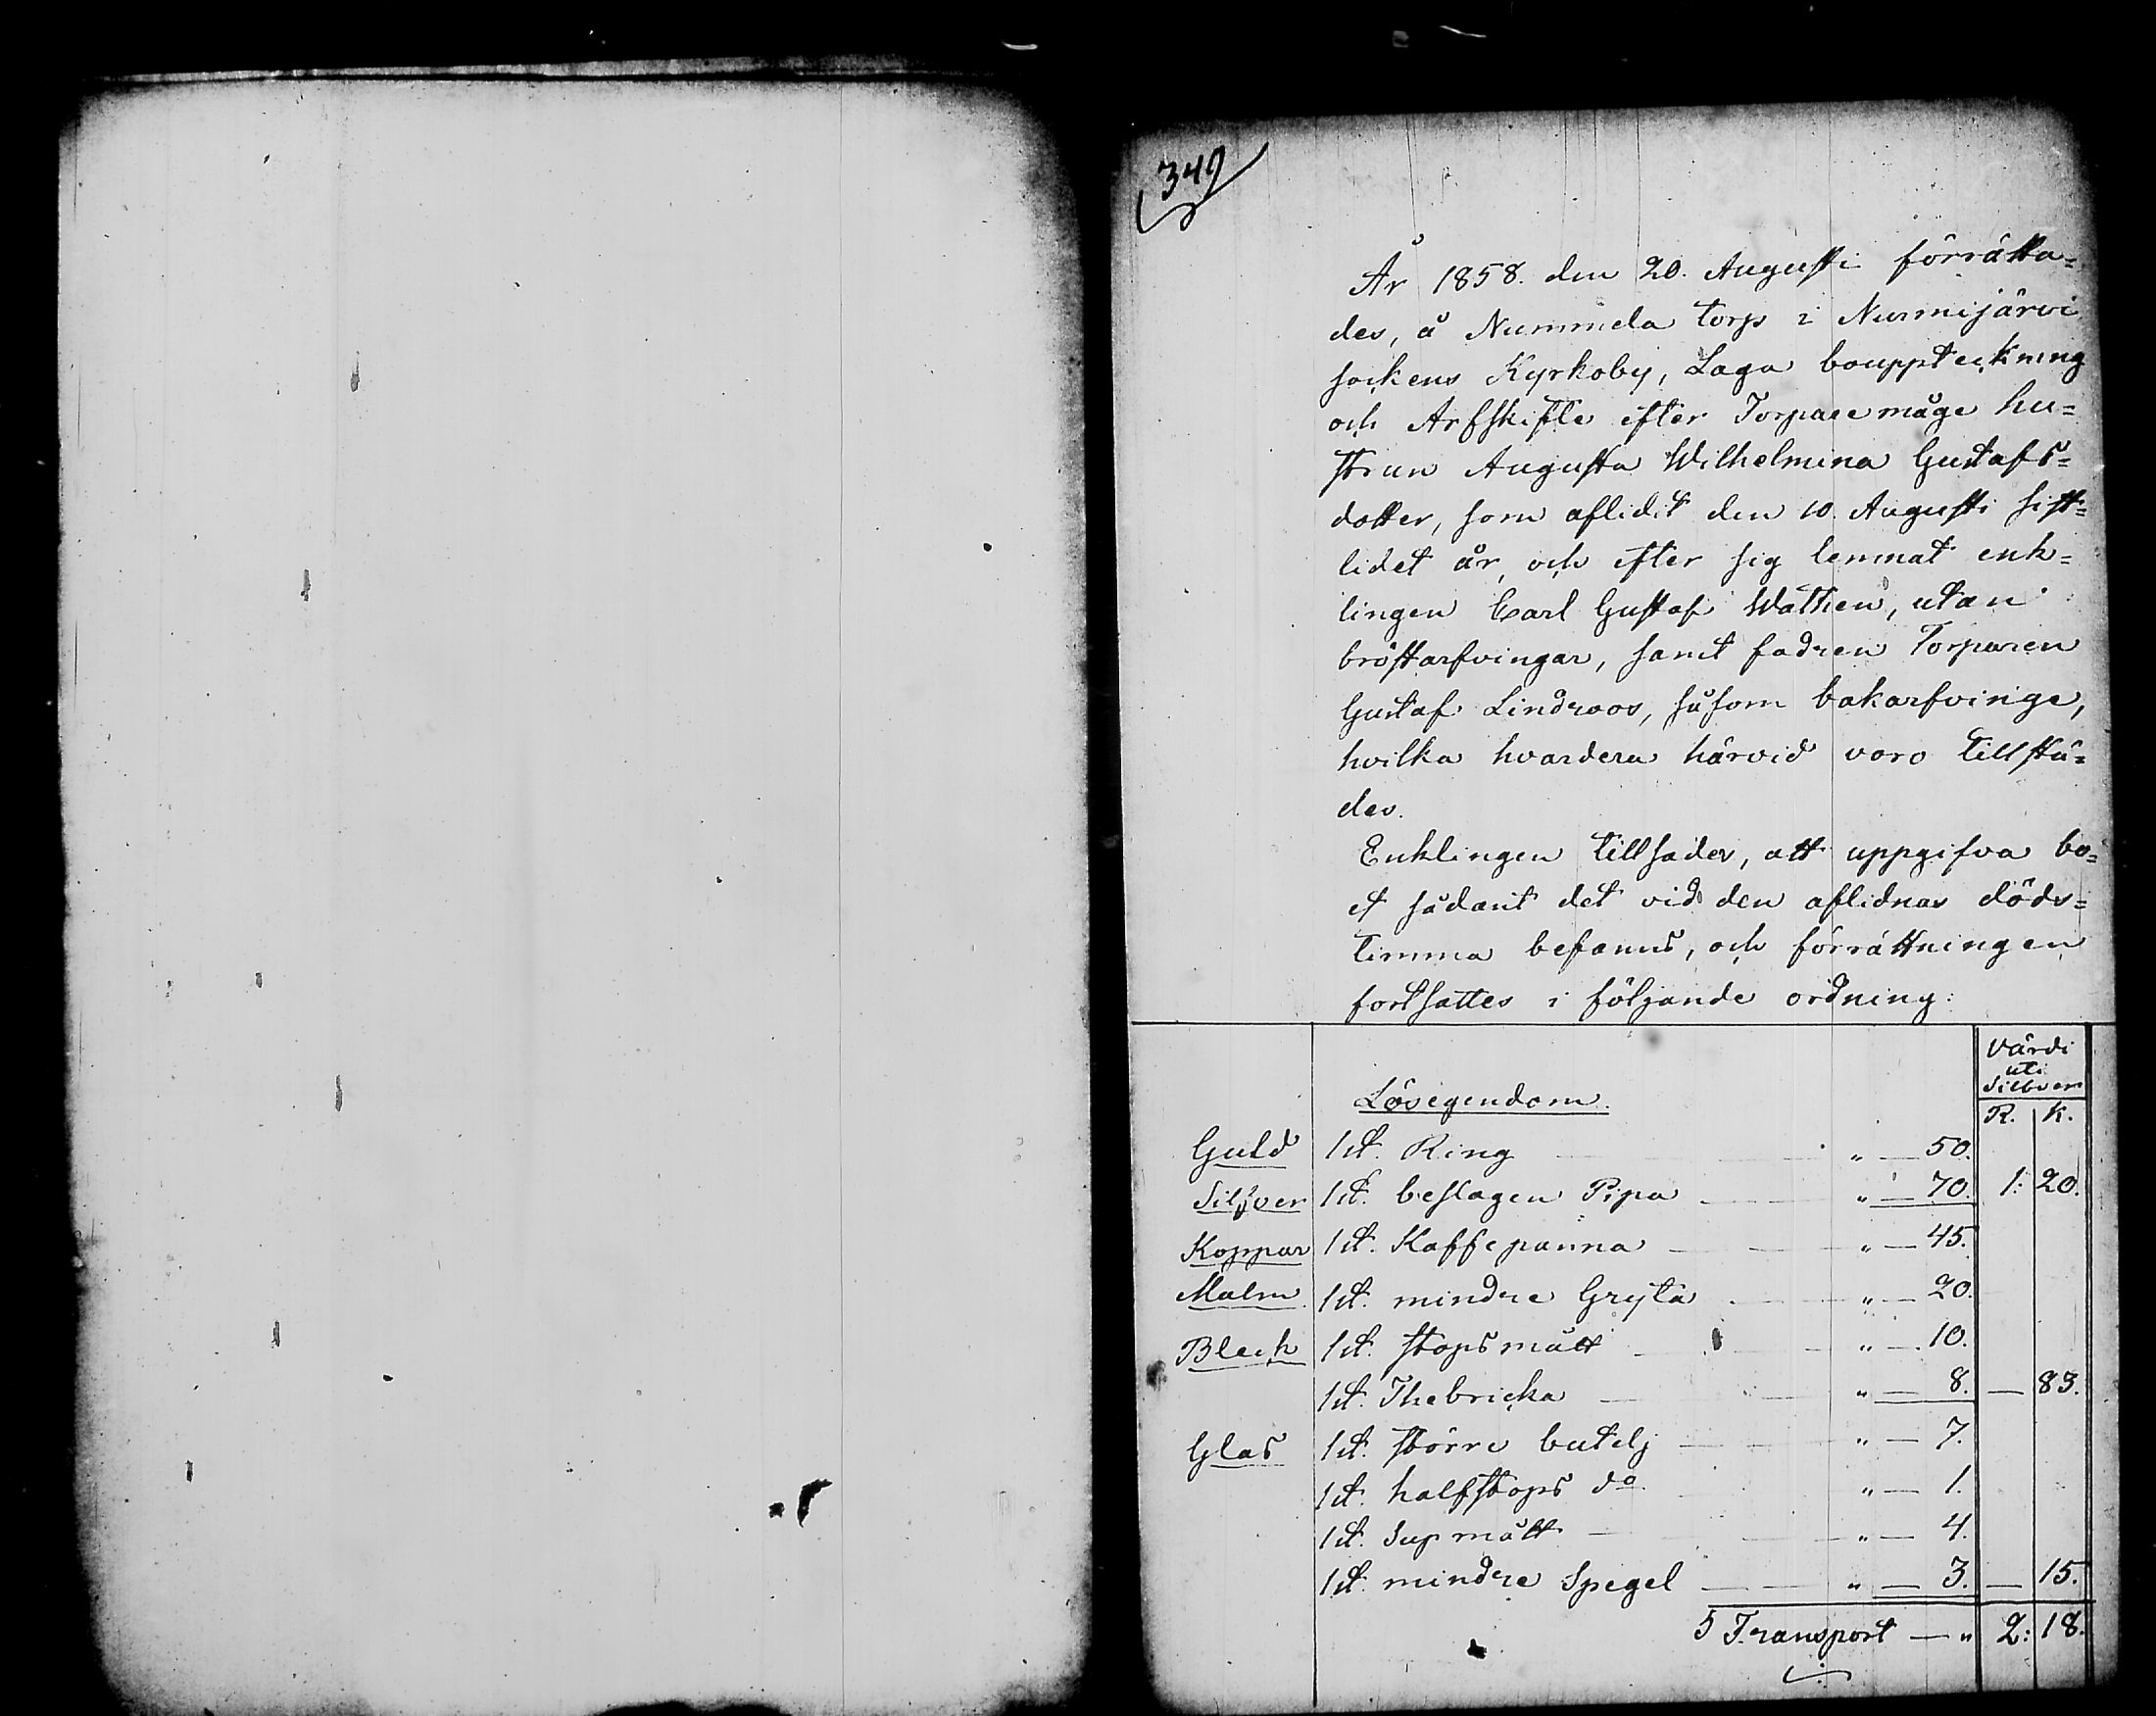 349
År 1858. den 20. Augusti förrätta=
des, å Nummela torp i Nurmijärvi
sockens Kyrkoby, Laga bouppteckning
och Arfskifte efter Torparemåge hu=
strun Augusta Wilhelmina Gustafs=
dotter, som aflidit den 10. Augusti sist=
lidet år, och efter sig lemnat enk=
lingen Carl Gustaf Wathen, utan
bröstarfvingar, samt fadren Torparen
Gustaf Lindroos, såsom bakarfvinge,
hvilka hvardera härvid voro tillstä=
des.
Enklingen tillsades, att uppgifva bo=
et sådant det vid den aflidnas döds=
timma befanns, och förrättningen
fortsattes i följande ordning:
Värdi
uti
Silfver
Lösegendom.
R. K.
Guld 1 st. Ring " — 50.
Silfver 1 st. beslagen Pipa — " — 70. 1: 20.
Koppar 1 st. Kaffepanna — " — 45.
Malm 1 st. mindre Gryta — " — 20.
Bleck 1 st. stopsmått — " — 10.
1 st. Thebricka — " — 8. — 83.
Glas 1 st. större butelj — " — 7.
1 st. halfstops do " — 1.
1 st. Supmått — " — 4.
1 st. mindre Spegel — " — 3. — 15.
Transport — " 2: 18.